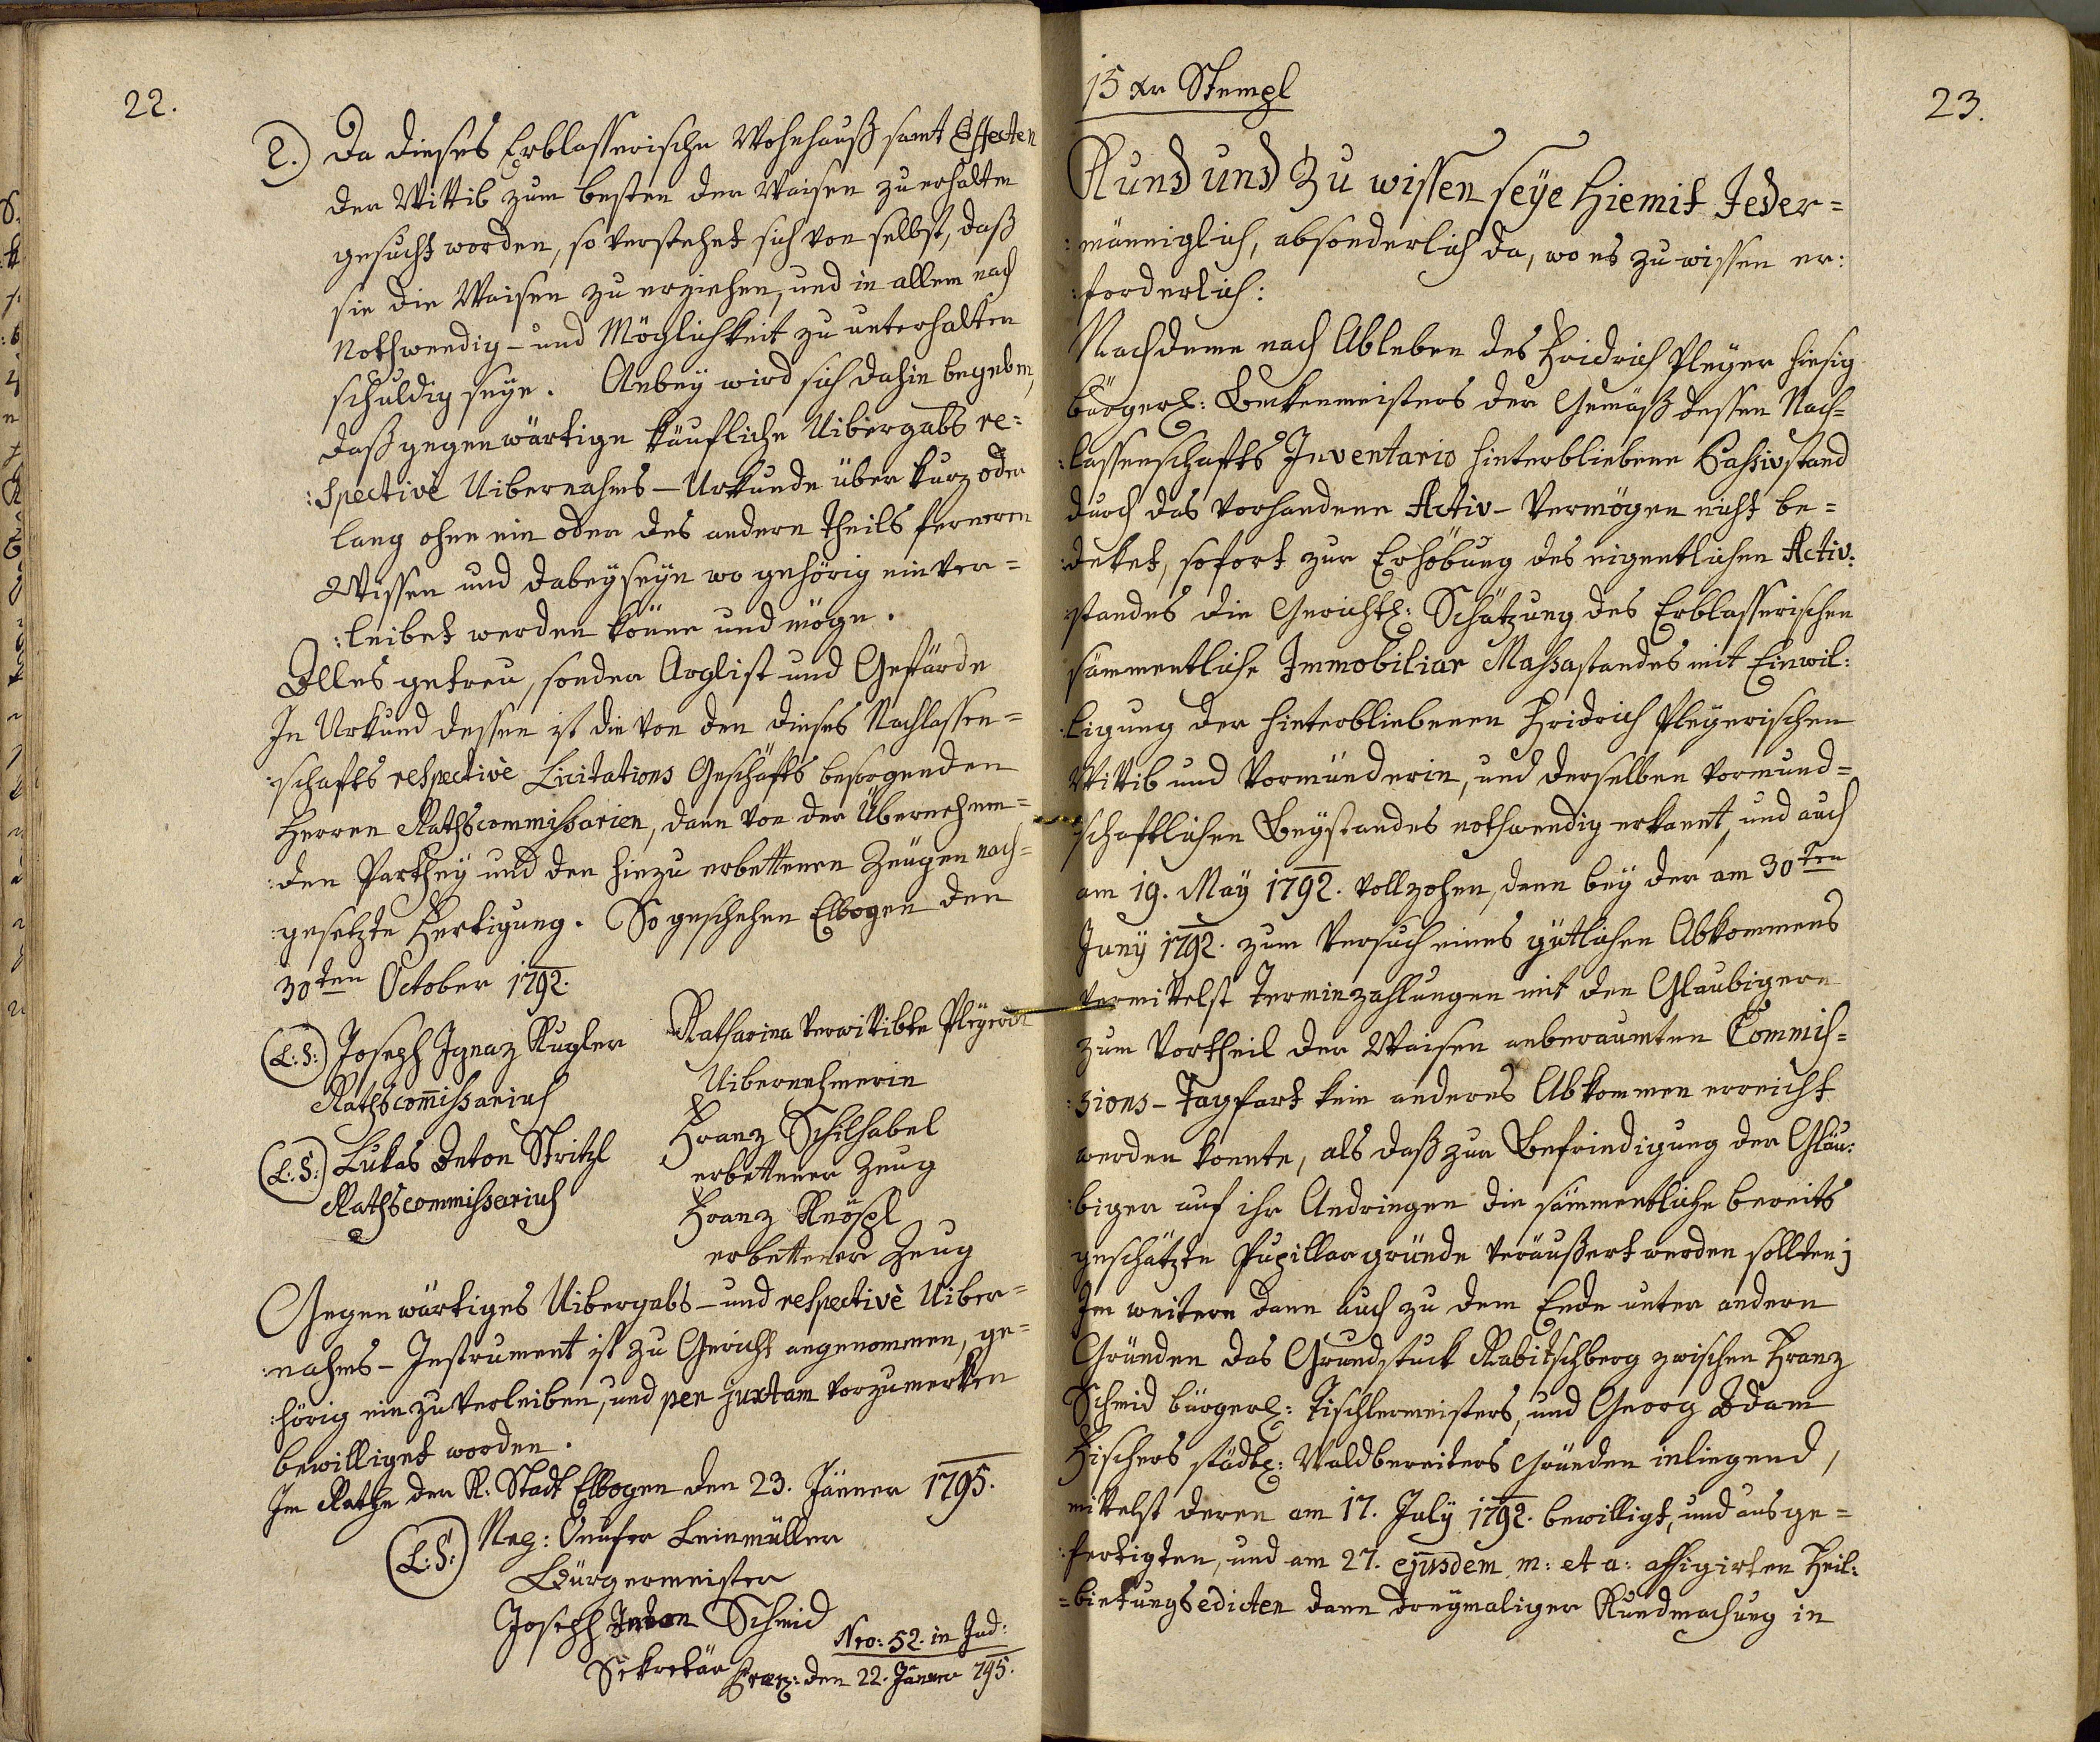 22.
2.) Da dieses Erblasserische Wohnhauß samt Effecten
der Wittib zum besten der Waisen zu erhalten
gesucht worden, so verstehet sich von selbst, daß
sie die Waisen zu erziehen, und in allem nach
Nothwendig- und Möglichkeit zu unterhalten
schuldig seye. Anbey wird sich dahin begeben,
daß gegenwärtige käufliche Uibergabs re=
:spectivè Uibernahms-Urkunde über kurz oder
lang ohne ein oder des andern Theils ferneren
Wissen und dabeyseyn wo gehörig einver=
:leibet werden könne und möge.
Alles getreu, sonder Arglist und Gefärde
In Urkund dessen ist die von den dieses Nachlassen=
:schafts respectivè Licitations Geschäfts besorgenden
Herren Rathscommissarien, dann von der Übernehmen=
:den Parthey und den hiezu erbettenen Zeugen nach=
:gesetzte Fertigung. So geschehen Elbogen den
30ten October 1792.
(L:S:) Joseph Ignaz Kugler
Rathscom̄issarius
(L:S:) Lukas Anton Stritzl
Rathscommissarius
Katharina verwittibte Pleyerin
Uibernehmerin
Franz Schilhabel
erbettener Zeug
Franz Knöspl
erbettener Zeug
Gegenwärtiges Uibergabs- und respectivè Uiber=
:nahms-Instrument ist zu Gericht angenommen, ge=
:hörig einzuverleiben, und per juxtam vorzumerken
bewilliget worden.
Im Rathe der K: Stadt Elbogen den 23. Jänner 1795.
(L:S:) Onufer Leinmüller
Bürgermeister
Joseph Anton Schmid
Sekretär
Nro: 52. in Jud:
den 22. Jänner 795.
23.
15 xr Stempl
Kund und Zu wissen seye Hiemit Jeder=
:männiglich, absonderlich da, wo es zu wissen er:
:forderlich:
Nachdeme nach Ableben des Fridrich Pleyer hiesig
bürgerl: Beckenmeisters der Gemäß dessen Nach=
:lassenschafts Inventario hinterbliebene Passivstand
durch das vorhandene Activ-Vermögen nicht be=
:deket, sofort zur Erhöbung des eigentlichen Activ:
:standes die Gerichtl: Schätzung des Erblasserischen
sämmentliche Immobiliar Massastandes mit Einwil:
:ligung der hinterbliebenen Fridrich Pleyerischen
Wittib und Vormünderin, und derselben vormund=
:schaftlichen Beystandes nothwendig erkannt, und auch
am 19. May 1792. vollzohen, dann bey der am 30ten
Juny 1792. zum Versuch eines gütlichen Abkommens
vermittelst Terminzahlungen mit den Glaubigern
zum Vortheil der Waisen anberaumten Commis=
:sions-Tagfart kein anderes Abkommen erreicht
werden konnte, als daß zur Befriedigung der Gläu:
:biger auf ihr Andringen die sämmentliche bereits
geschätzte Pupillargründe veräußert werden sollten;
Im weitern dann auch zu dem Ende unter andern
Gründen das Grundstuck Rabitschberg zwischen Franz
Schmid bürgerl: Tischlermeisters, und Georg Adam
Fischers städtl: Waldbereiters Gründen inliegend,
mittelst deren am 17. July 1792. bewilligt, und ausge=
:fertigten, und am 27. ejusdem m: et a: affigirten Feil:
=bietungsedicten dann dreymaliger Kundmachung in